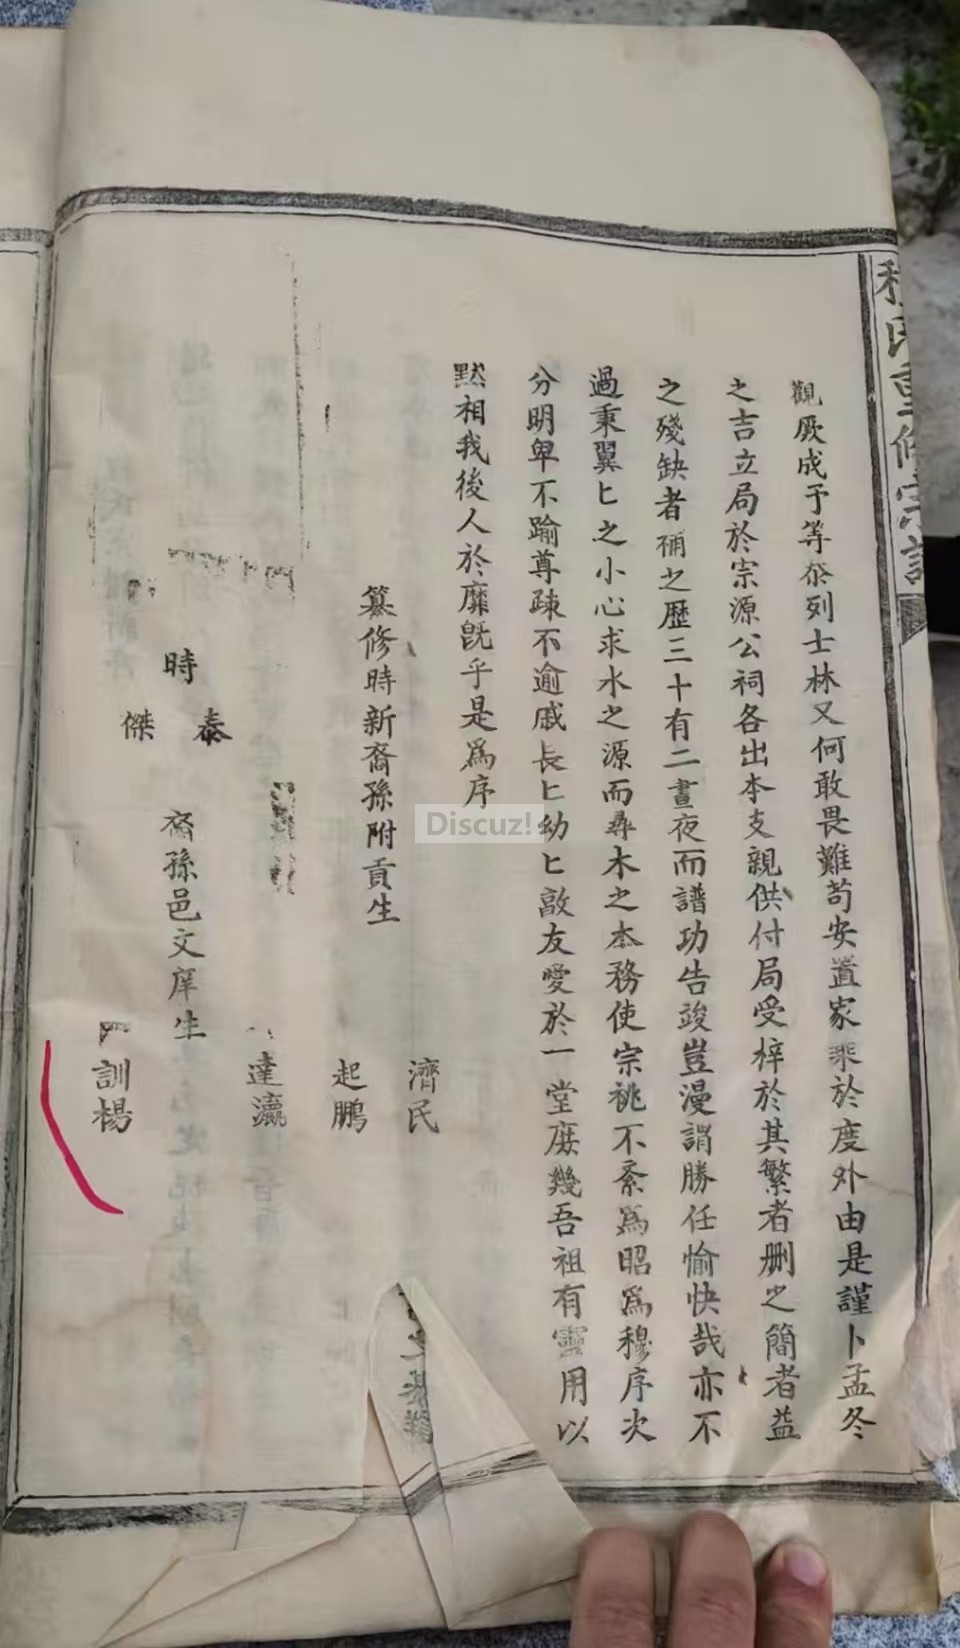 程氏重修宗譜
觀厥成予等忝列士林又何敢畏難苟安置家乘於度外由是謹卜孟冬
之吉立局於宗源公祠各出本支親供付局受梓於其繁者删之簡者益
之殘缺者補之歷三十有二晝夜而譜功告竣豈漫謂勝任愉快哉亦不
過秉翼匕之小心求水之源而尋木之本務使宗祧不紊為昭為穆序次
分明卑不踰尊踈不逾戚長匕幼匕敦友愛於一堂庶幾吾祖有靈用以
黙相我後人於靡旣乎是為序
濟民
纂修時新裔孫附貢生
起鵬
達瀛
泰
時
裔孫邑文庠生
傑
訓楊
Discuz!